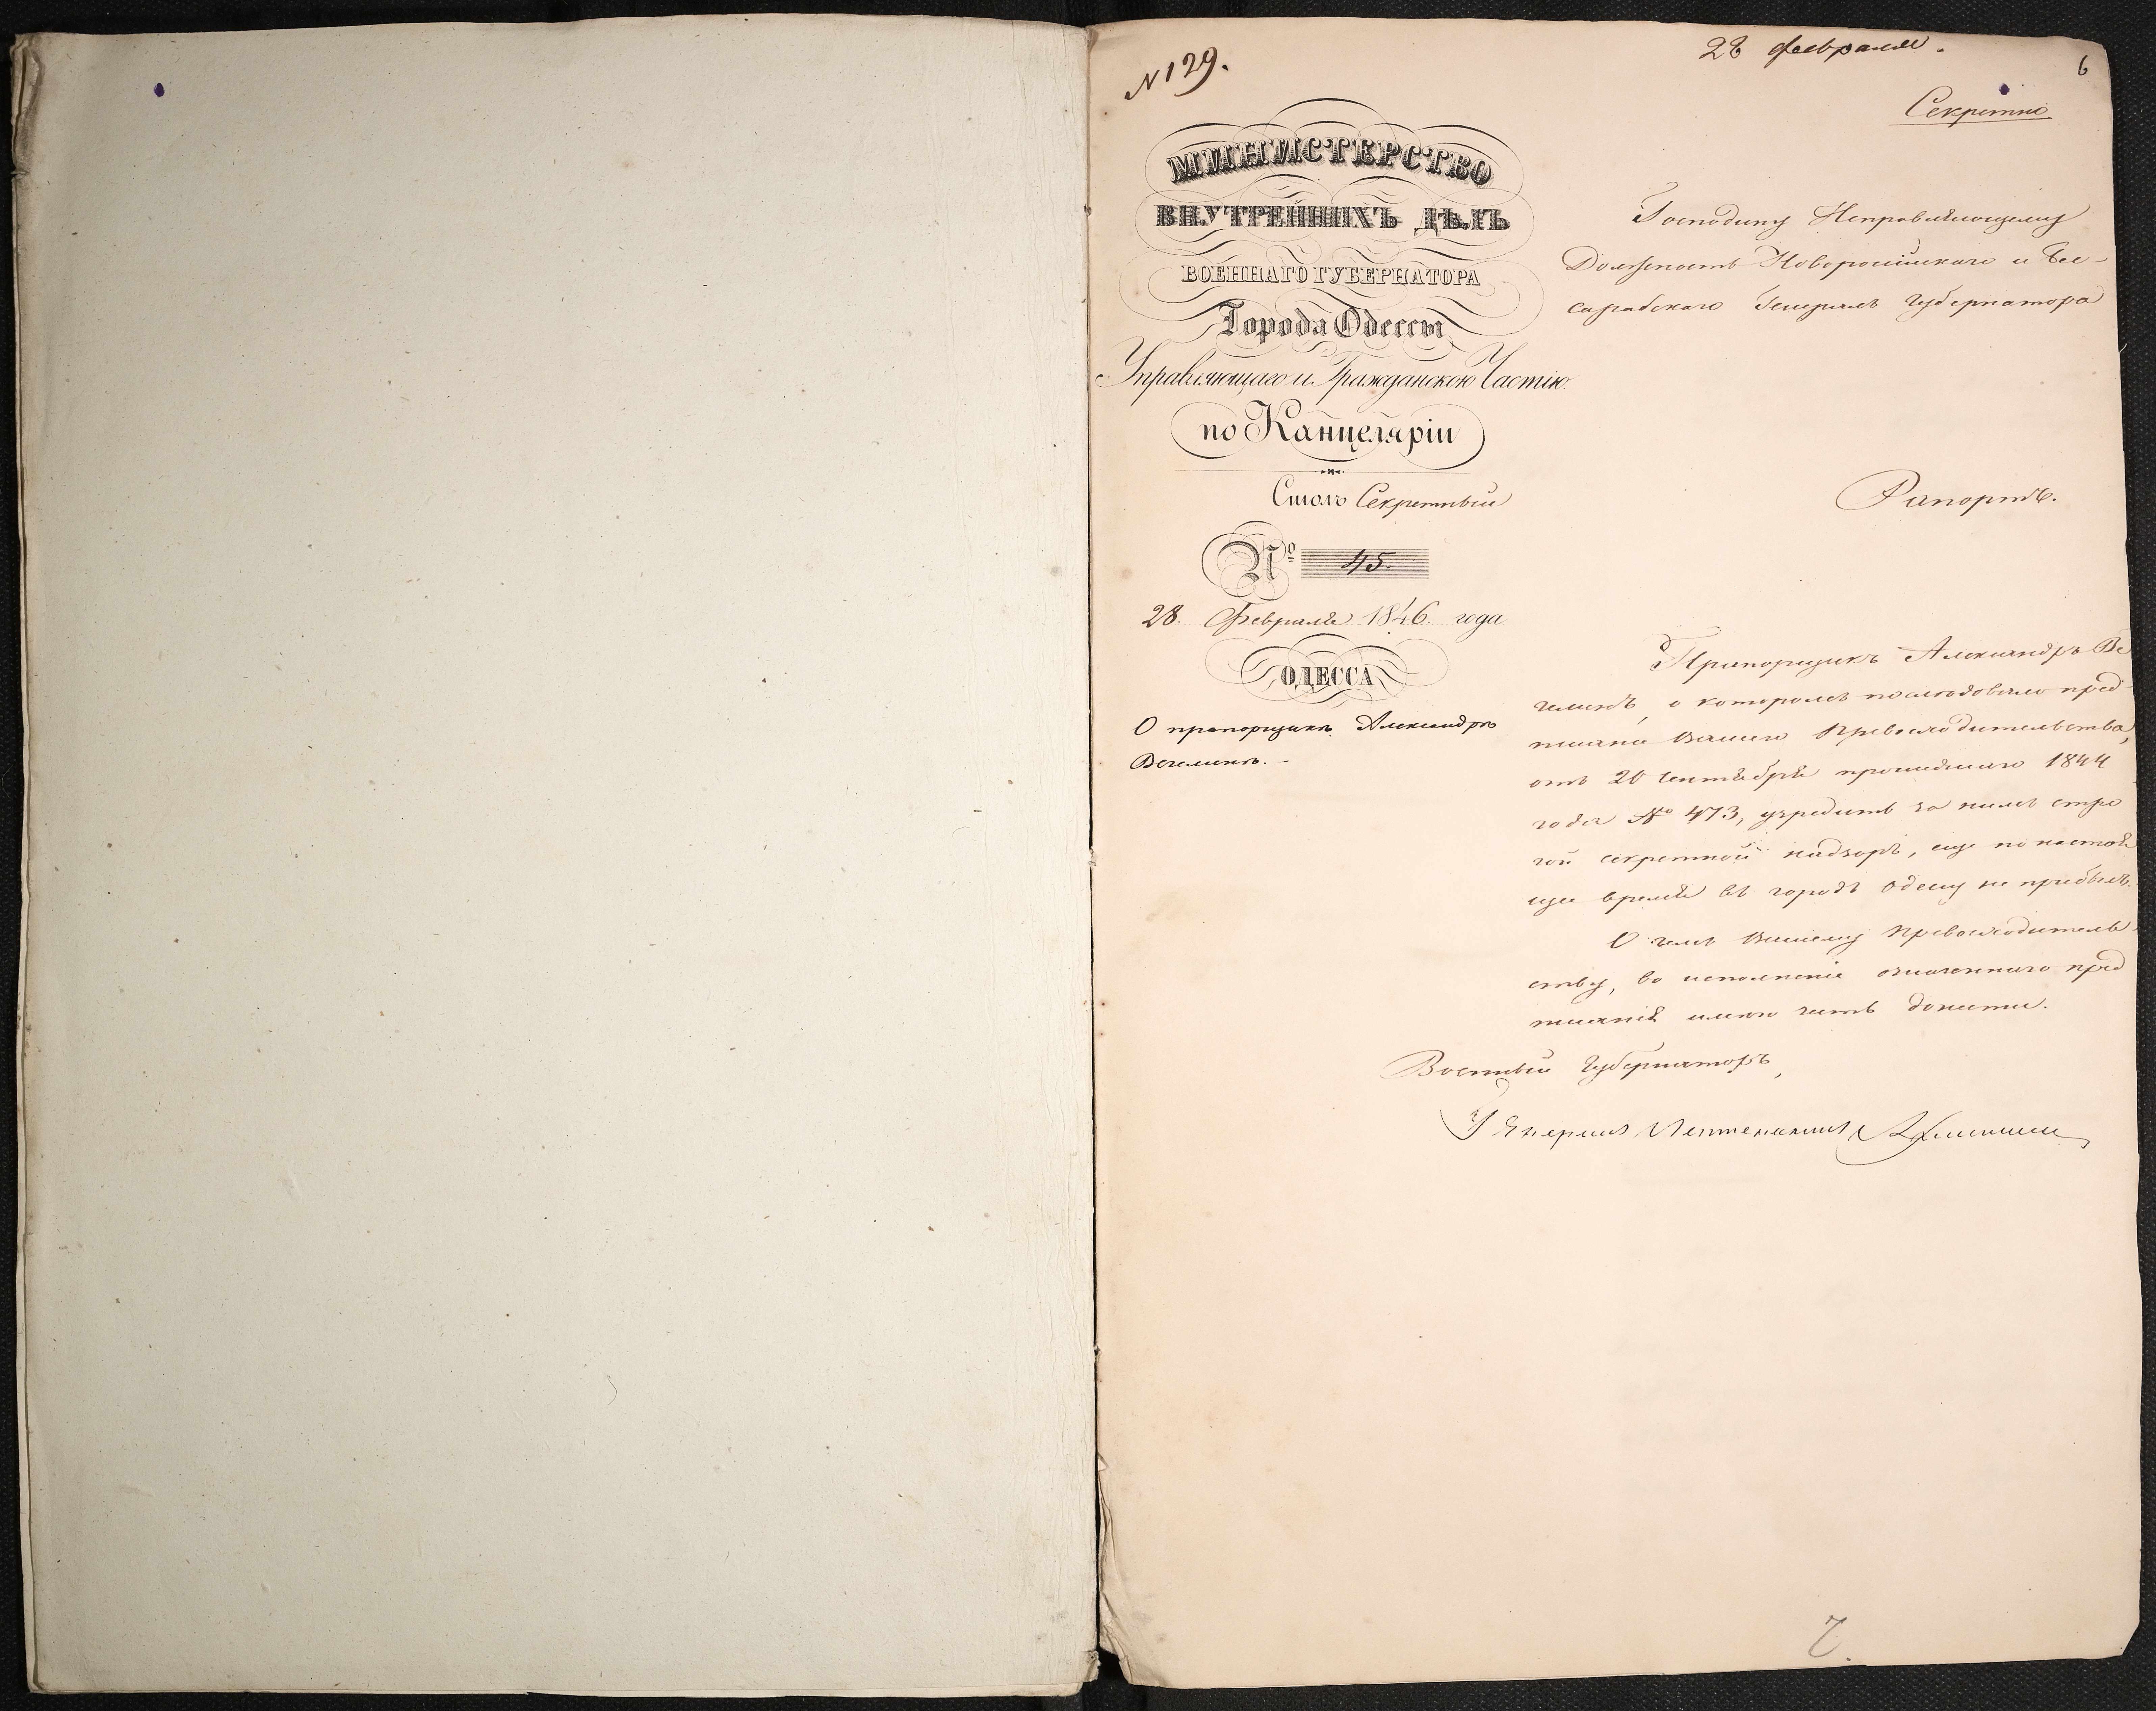 № 129.
28 февраля.
6
Секретно
МИНИСТЕРСТВО
ВНУТРЕННИХЪ ДѢЛЪ
ВОЕННАГО ГУБЕРНАТОРА
Города Одессы
Управляющаго и Гражданскою Частію
по Канцеляріи
Столъ Секретный
№ 45.
28. Февраля 1846. года
ОДЕССА
О прапорщикѣ Александрѣ
Вегелинѣ. –
Господину Исправляющему
Должность Новороссійскаго и Бес-
сарабскаго Генералъ Губернатора
Рапортъ.
Прапорщикъ Александръ Ве
гелинъ, о которомъ послѣдовало пред-
писаніе Вашего Превосходительства,
отъ 20 Сентября прошедшаго 1844
года № 473, учредить за нимъ стро
гой секретной надзоръ, еще по настоя
щее время въ городъ Одессу не прибылъ.
О чемъ Вашему Превосходитель-
ству, во исполненіе означеннаго пред
писанія имѣю честь донести.
Военный Губернаторъ,
Генералъ Лейтенантъ
7.